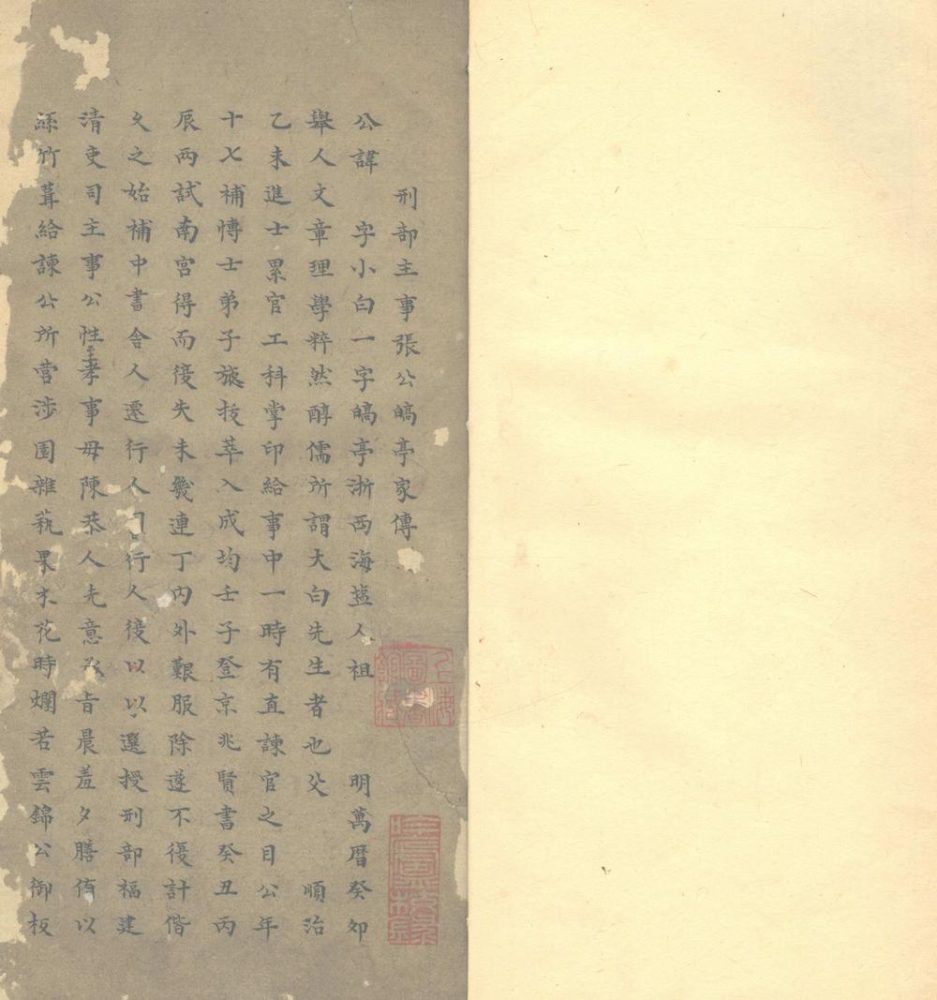 刑部主事張公皜亭家傳
公諱 字小白一字皜亭浙西海塩人祖 明萬曆癸卯
舉人文章理學粹然醇儒所謂大白先生者也父 順治
乙未進士累官工科掌印給事中一時有直諫官之目公年
十七補愽士弟子旅抜萃入成均壬子登京兆賢書癸丑丙
辰兩試南宮得而復失未幾連丁內外艱服除遂不復計偕
久之始補中書舍人遷行人司行人後以以選授刑部福建
清吏司主事公性至孝事毋陳恭人先意承旨晨羞夕膳侑以
絲竹葺給諫公所營涉園雜蓺果木花時爛若雲錦公御板